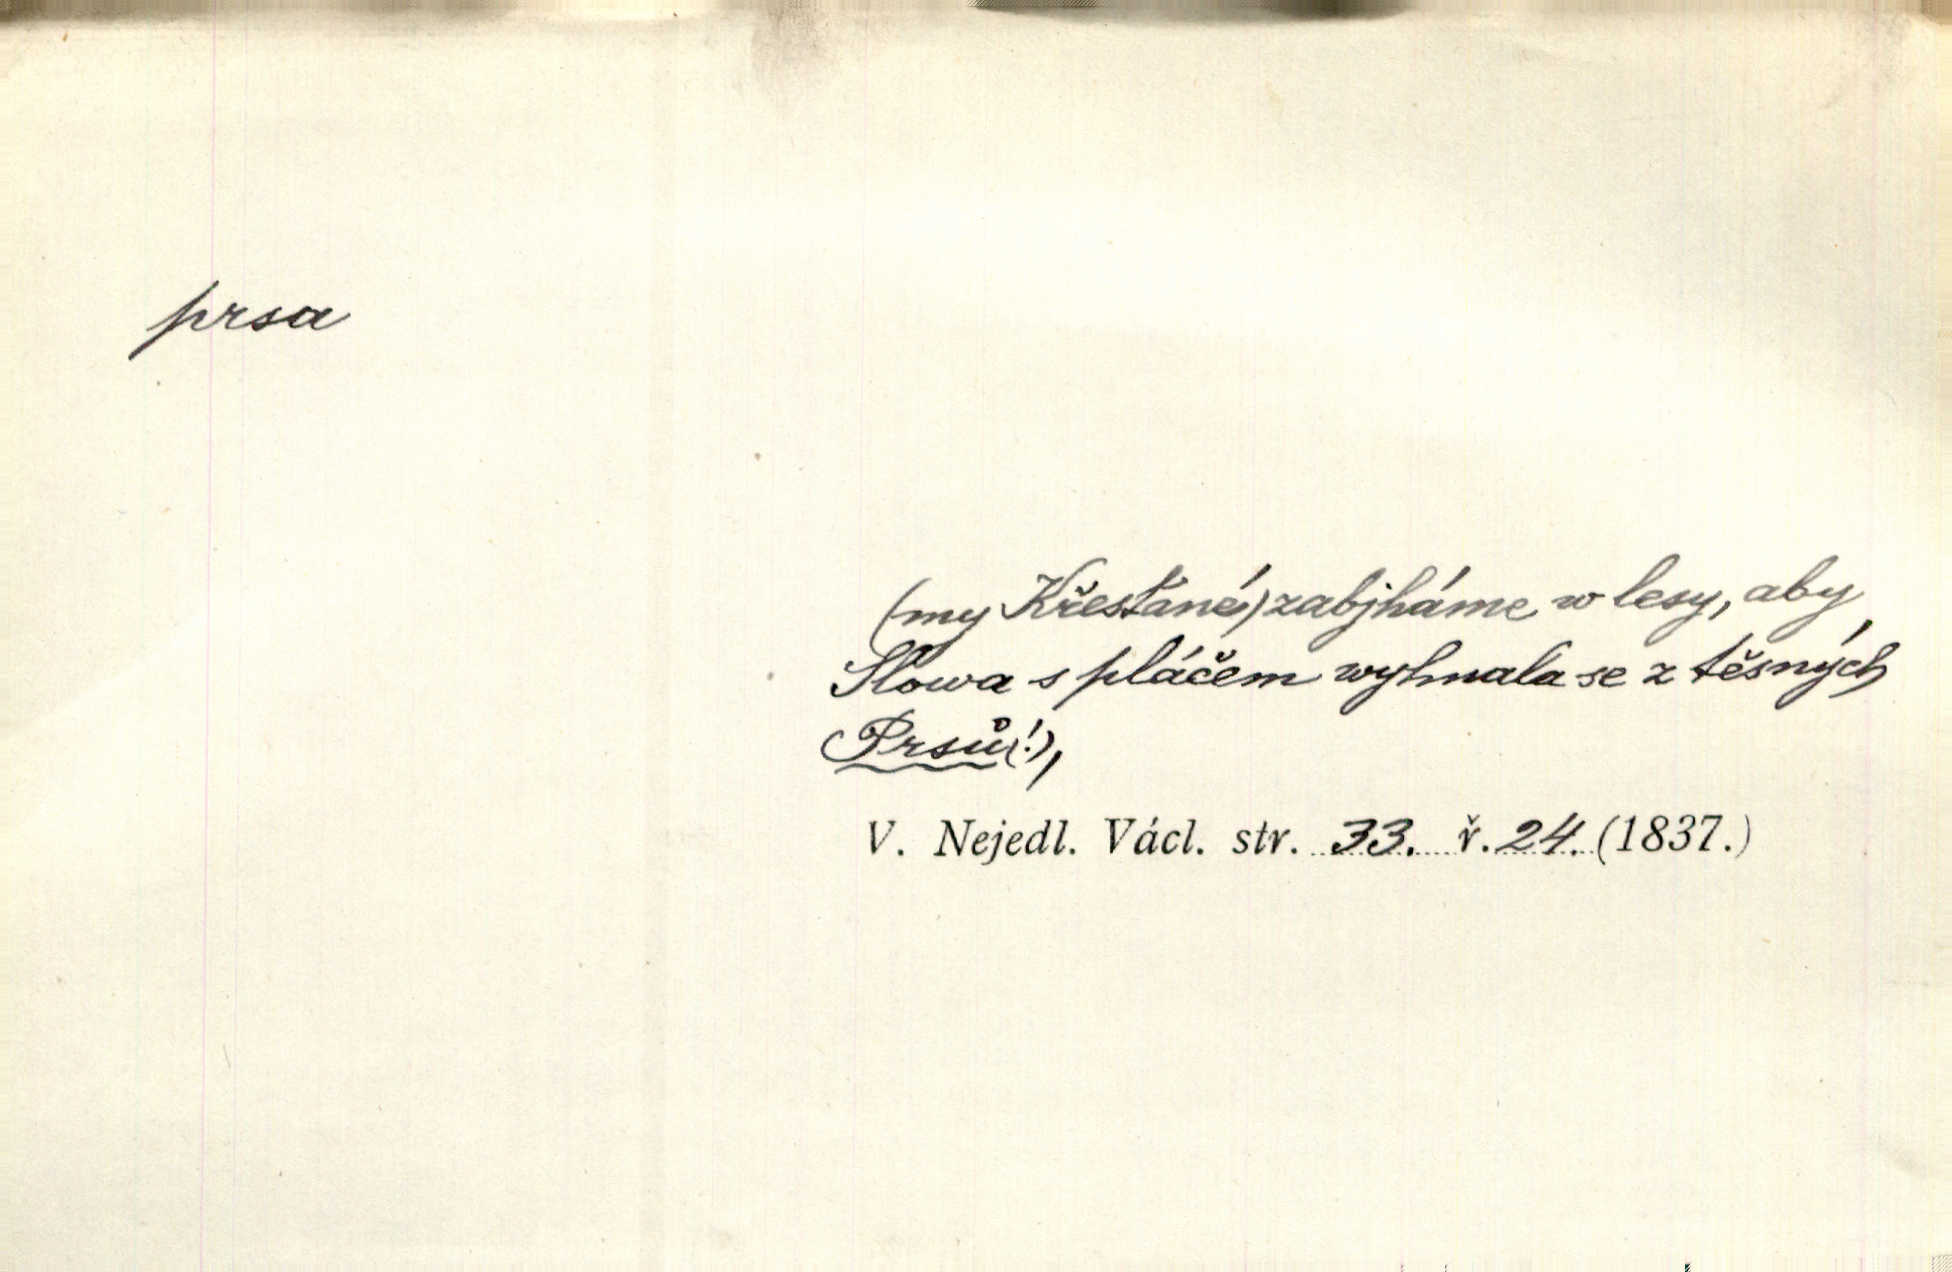 prsa
(my Křesťané) zabjháme w lesy, aby
Slowa s pláčem wyhnala se z těsných
Prsů (!),
V. Nejedl. Václ. str. 33. ř. 24. (1837.)